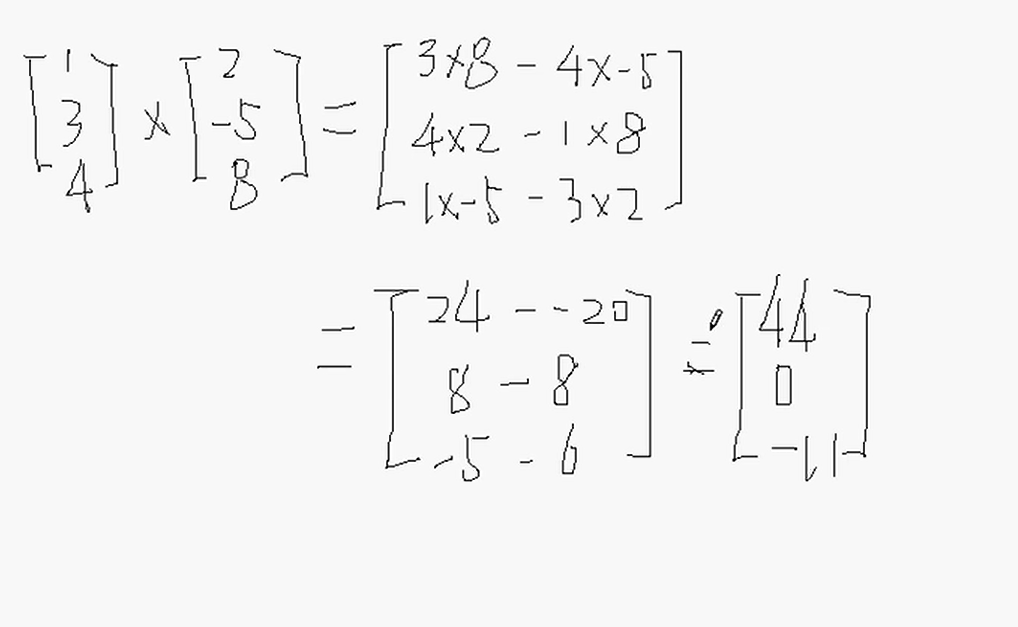 [1 3 4] × [2 -5 8] = [3×8 - 4×-5
4×2 - 1×8
1×-5 - 3×2]
= [24 - -20
8 - 8
-5 - 6] = [44
0
-11]